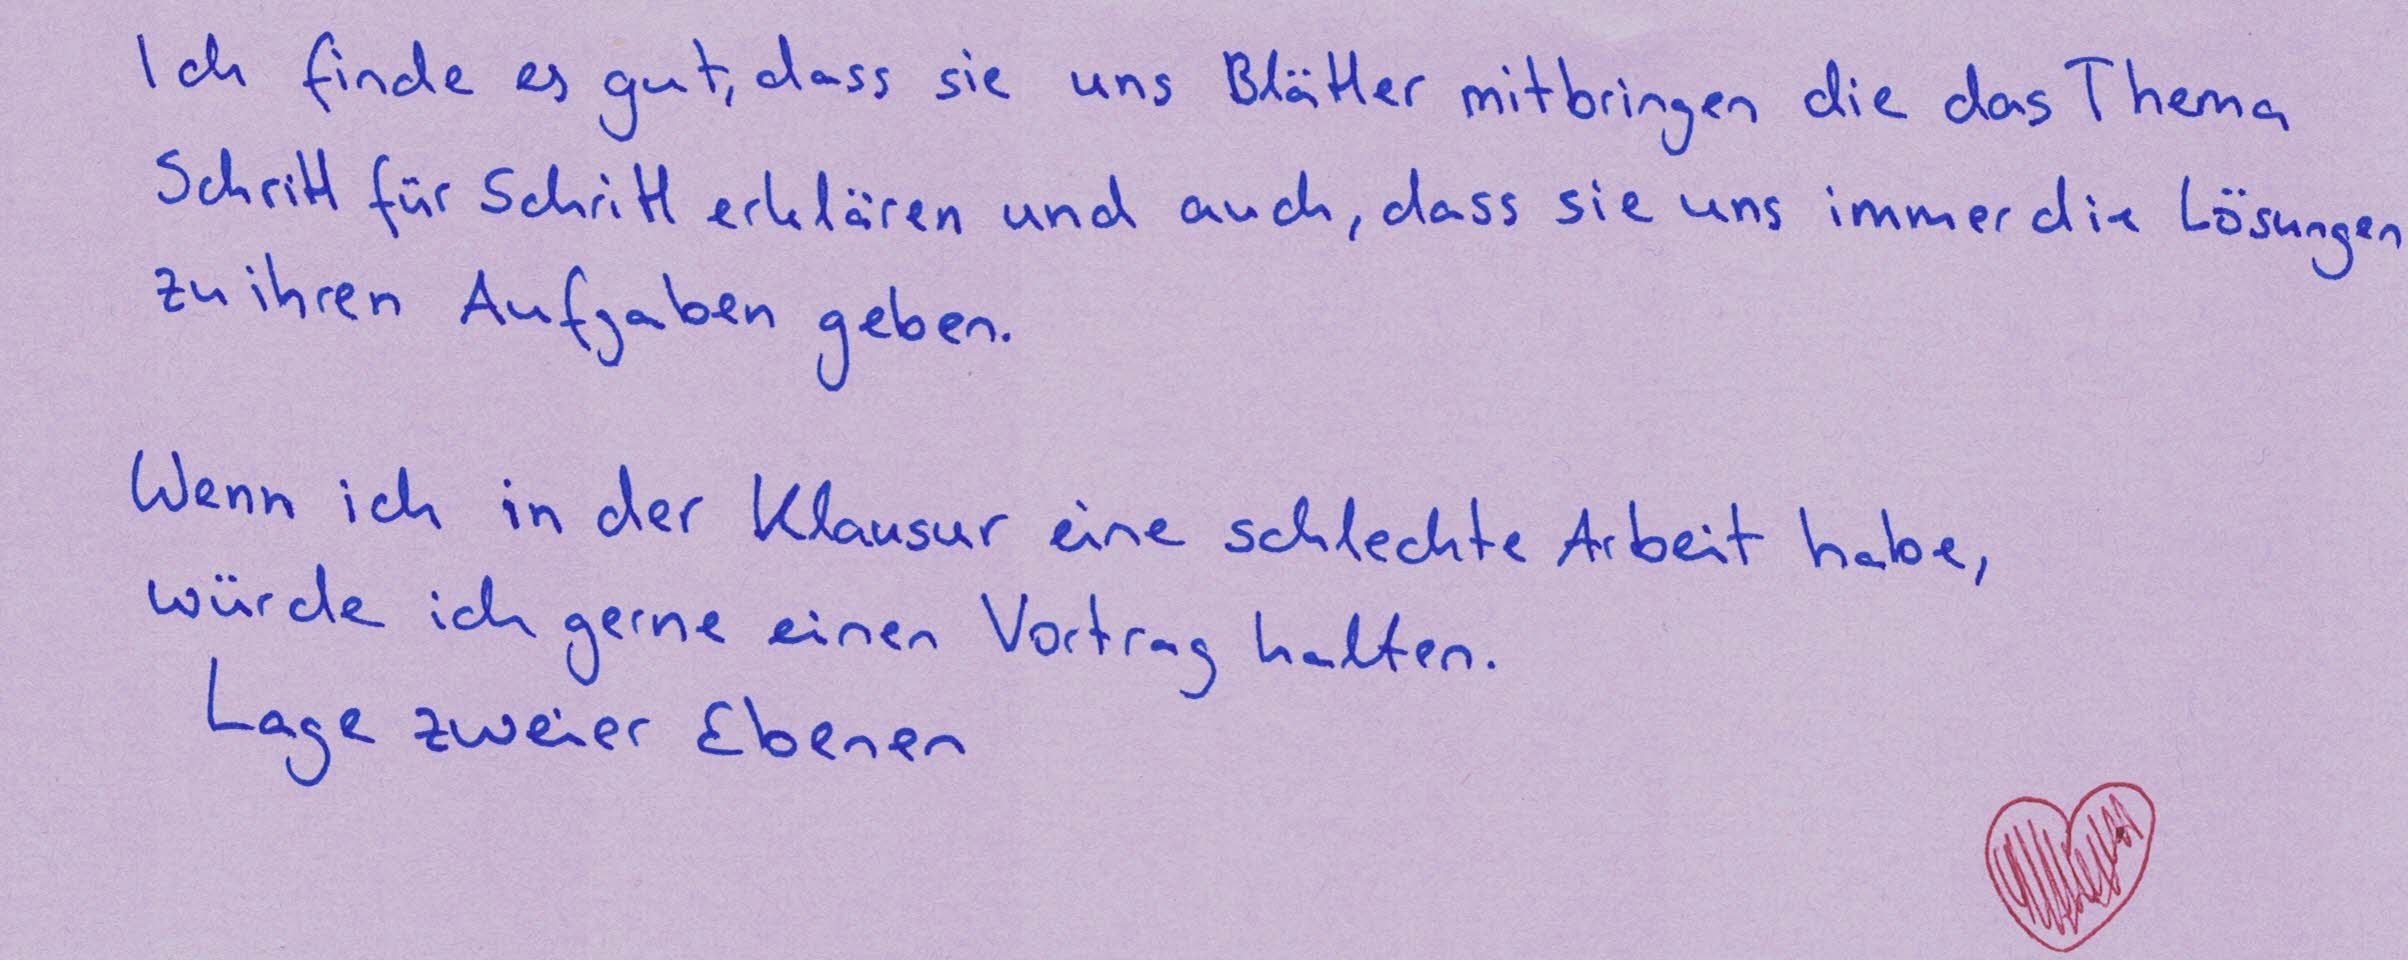 Ich finde es gut, dass sie uns Blätter mitbringen die das Thema
Schritt für Schritt erklären und auch, dass sie uns immer die Lösungen
zu ihren Aufgaben geben.
Wenn ich in der Klausur eine schlechte Arbeit habe,
würde ich gerne einen Vortrag halten.
Lage zweier Ebenen